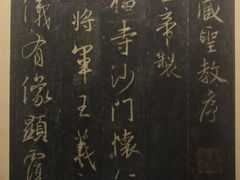 藏聖教序
帝製
福寺沙門懷仁
將軍王羲
儀有像顯覆